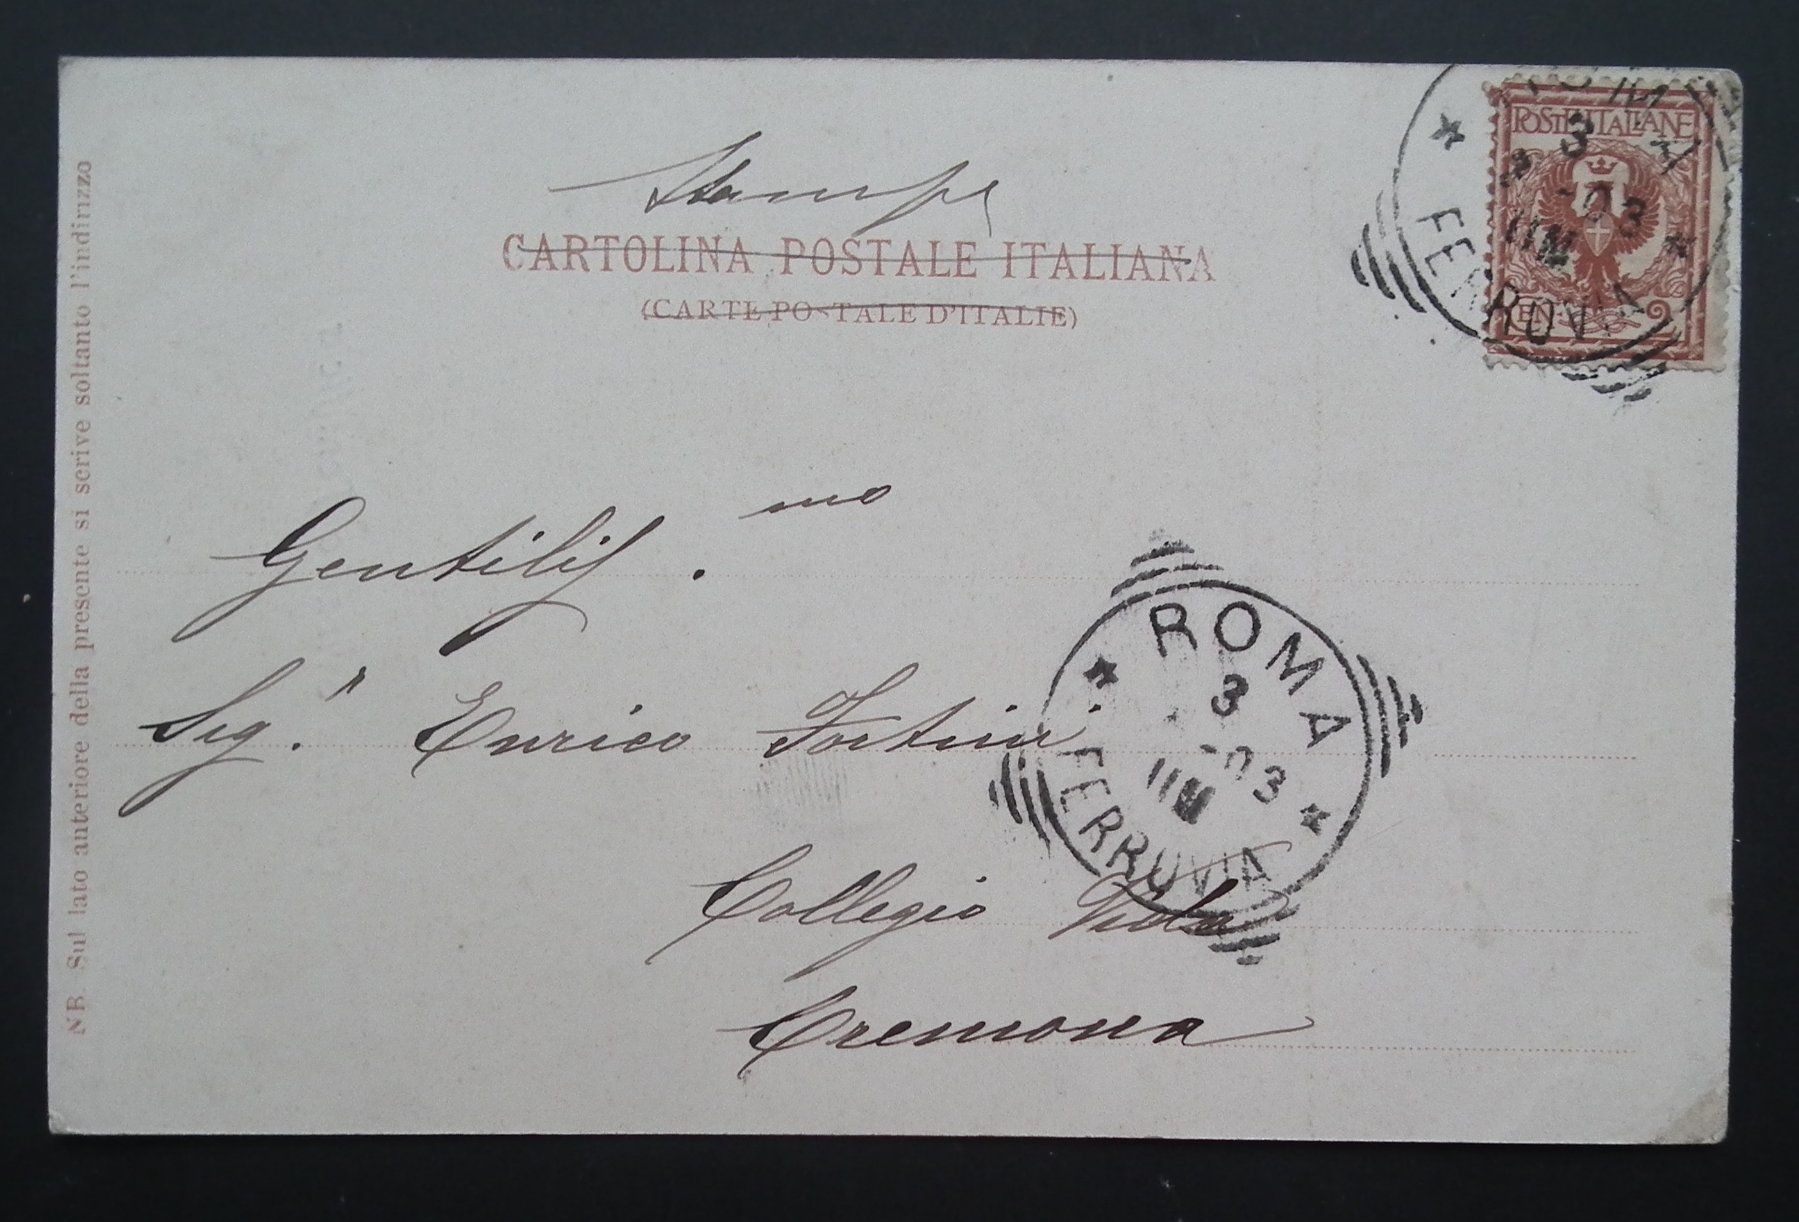 Stampe
CARTOLINA POSTALE ITALIANA
(CARTE POSTALE D'ITALIE)
POSTE ITALIANE
CEN. 2
ROMA
3
-03
11M
FERROVIA
Gentilis. mo
Sig. r Enrico Fortini
ROMA
3
-03
11M
FERROVIA
Collegio Vida
Cremona
NB. Sul lato anteriore della presente si scrive soltanto l'indirizzo